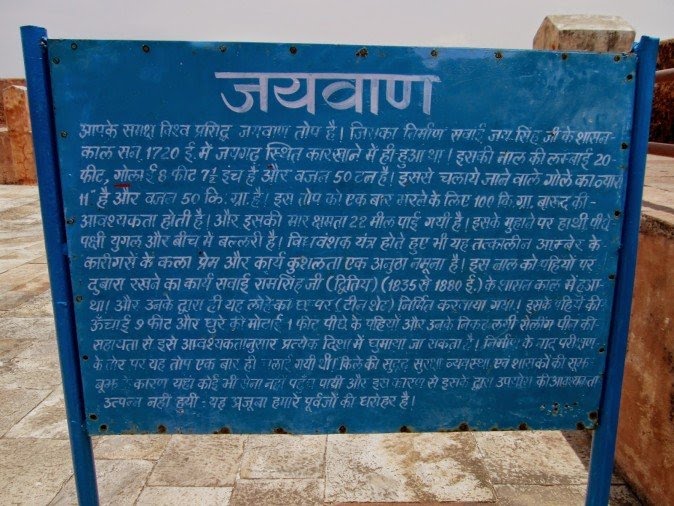 जयवाण
आपके समक्ष विश्व प्रसिद्ध जयवाण तोप है। जिसका निर्माण सवाई जय सिंह जी के शासन-
काल सन् 1720 ई. में जयगढ़ स्थित कारखाने में ही हुआ था। इसकी नाल की लम्बाई 20-
फीट, गोलाई 8 फीट 7½ इंच है और वजन 50 टन है। इससे चलाये जाने वाले गोले का व्यास
11" है और वजन 50 कि. ग्रा. है। इस तोप को एक बार भरने के लिए 100 कि. ग्रा. बारूद की-
आवश्यकता होती है। और इसकी मार क्षमता 22 मील पाई गयी है। इसके मुहाने पर हाथी पीछे
पक्षी युगल और बीच में बल्लरी है। विध्वंशक यंत्र होते हुए भी यह तत्कालीन आम्बेर के
कारीगरों के कला प्रेम और कार्य कुशलता एक अनुठा नमूना है। इस नाल को पहियों पर
दुबारा रखने का कार्य सवाई रामसिंह जी (द्वितिय) (1835 से 1880 ई.) के शासन काल में हुआ
था। और उनके द्वारा ही यह लोहे का छप्पर (टीन शेड) निर्मित करवाया गया। इसके पहिये की
ऊंचाई 9 फीट और धुरे की मोटाई 1 फीट पीछे के पहियों और उनके निकट लगी रोलींग पीन की
सहायता से इसे आवश्यकतानुसार प्रत्येक दिशा में घुमाया जा सकता है। निर्माण के बाद परीक्षण
के तोर पर यह तोप एक बार ही चलाई गयी थी। किले की सुदृढ़ सुरक्षा व्यवस्था एवं शासकों की सूझ-
बूझ के कारण यहां कोई भी सेना नहीं पहुंच पायी और इस कारण से इसके द्वारा उपयोग की आवश्यकता
उत्पन्न नहीं हुयी - यह अजूबा हमारे पूर्वजों की धरोहर है।